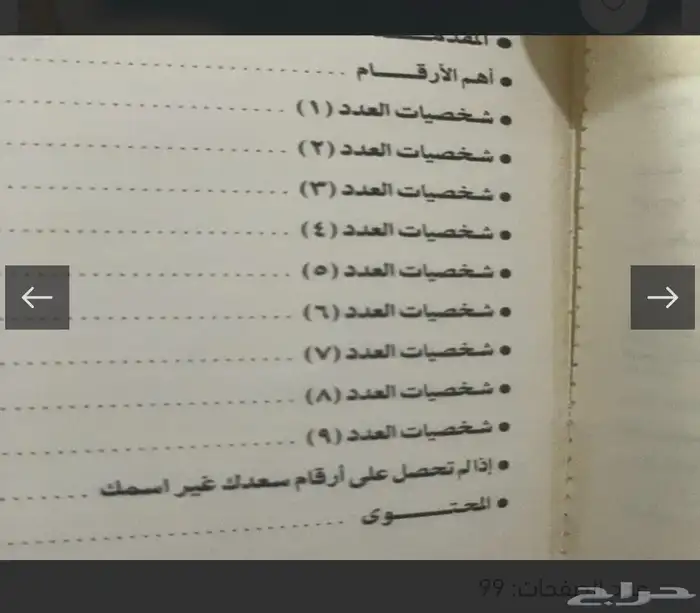 • المقدمـــة
• أهم الأرقـــــام
• شخصيات العدد (١)
• شخصيات العدد (٢)
• شخصيات العدد (٣)
• شخصيات العدد (٤)
• شخصيات العدد (٥)
• شخصيات العدد (٦)
• شخصيات العدد (٧)
• شخصيات العدد (٨)
• شخصيات العدد (٩)
• إذا لم تحصل على أرقام سعدك غير اسمك
• المحتـــــوى
الصفحات: 99
حراج